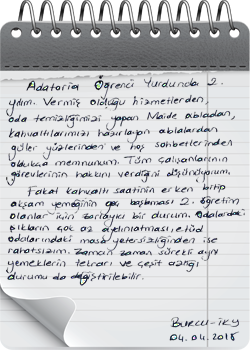 Adataria Öğrenci Yurdunda 2.
yılım. Vermiş olduğu hizmetlerden,
oda temizliğimizi yapan Maide abladan,
kahvaltılarımızı hazırlayan ablalardan
güler yüzlerinden ve hoş sohbetlerinden
oldukça memnunum. Tüm çalışanlarının
görevlerinin hakkını verdiğini düşünüyorum.
Fakat kahvaltı saatinin erken bitip
akşam yemeğinin geç başlaması 2. öğretim
olanlar için zorlayıcı bir durum. Odalardaki
ışıkların çok az aydınlatması, etüd
odalarındaki masa yetersizliğinden ise
rahatsızım. Zaman zaman sürekli aynı
yemeklerin tekrarı ve çeşit azlığı
durumu da değiştirilebilir.
04.04.2018